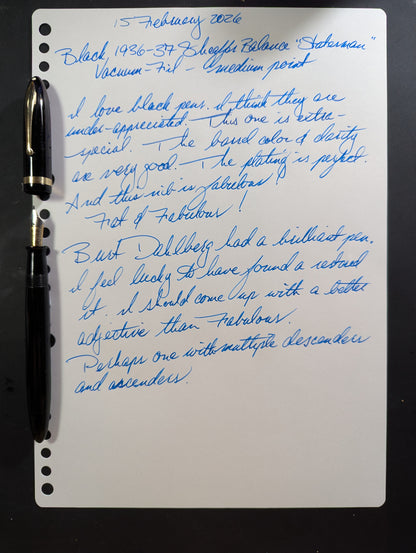 15 February 2026
Black, 1936-37 Sheaffer Balance "Statesman"
Vacuum-Fil - medium point
I love black pens. I think they are
under-appreciated. This one is extra-
special. The band color & clarity
are very good. The plating is perfect.
And this nib is fabulous!
Fat & Fabulous!
Burt Dahlberg had a brilliant pen.
I feel lucky to have found &
it. I should come up with a better
adjective than Fabulous.
Perhaps one with multiple descenders
and ascenders.